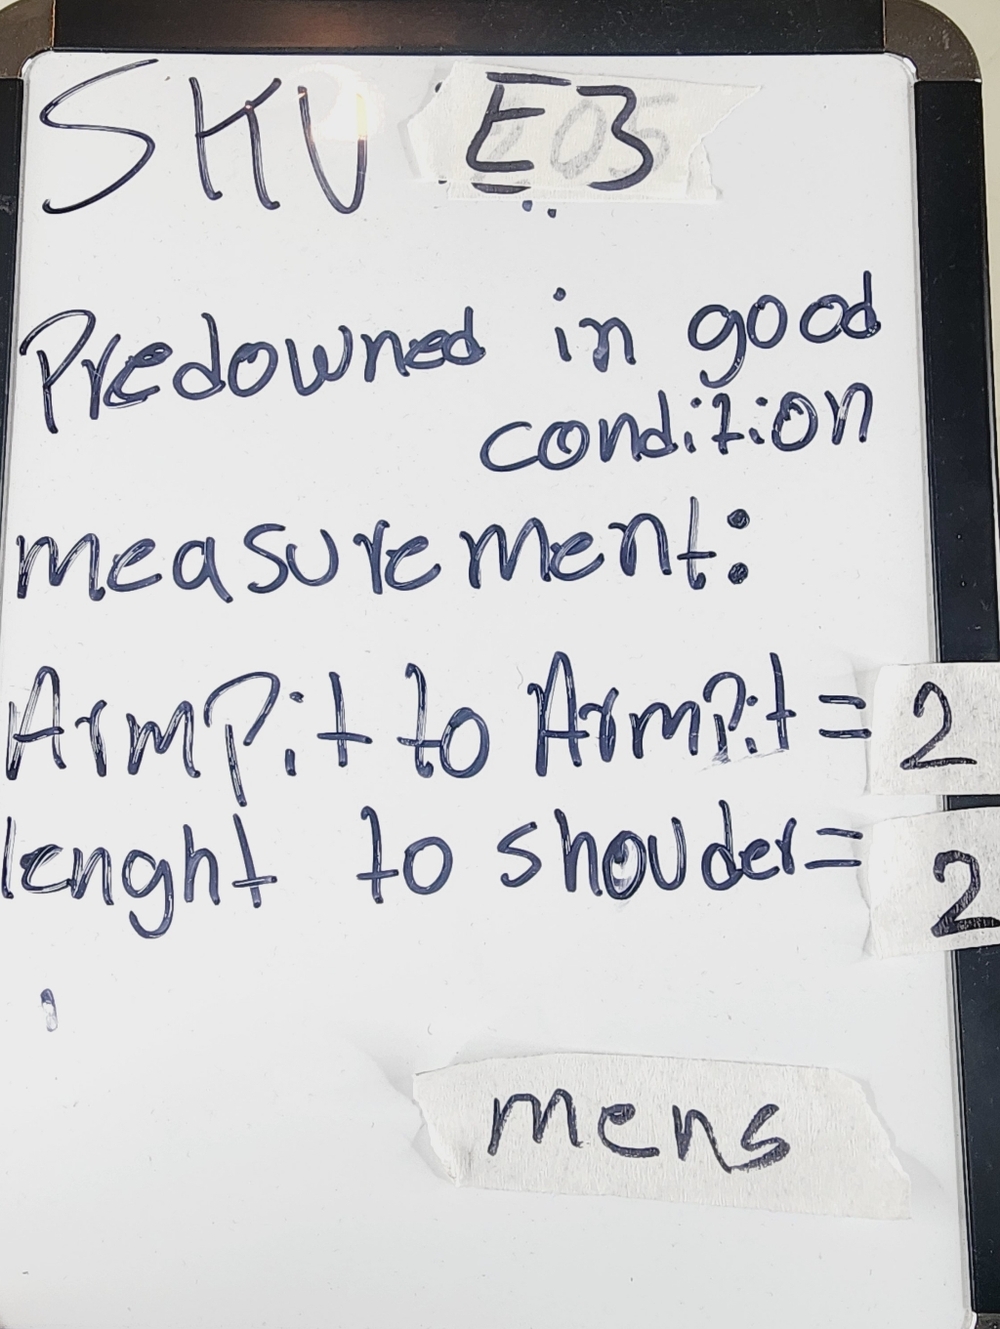 SKU E3
Predowned in good
condition
measurement:
ArmPit to ArmPit = 2
lenght to shouder = 2
mens